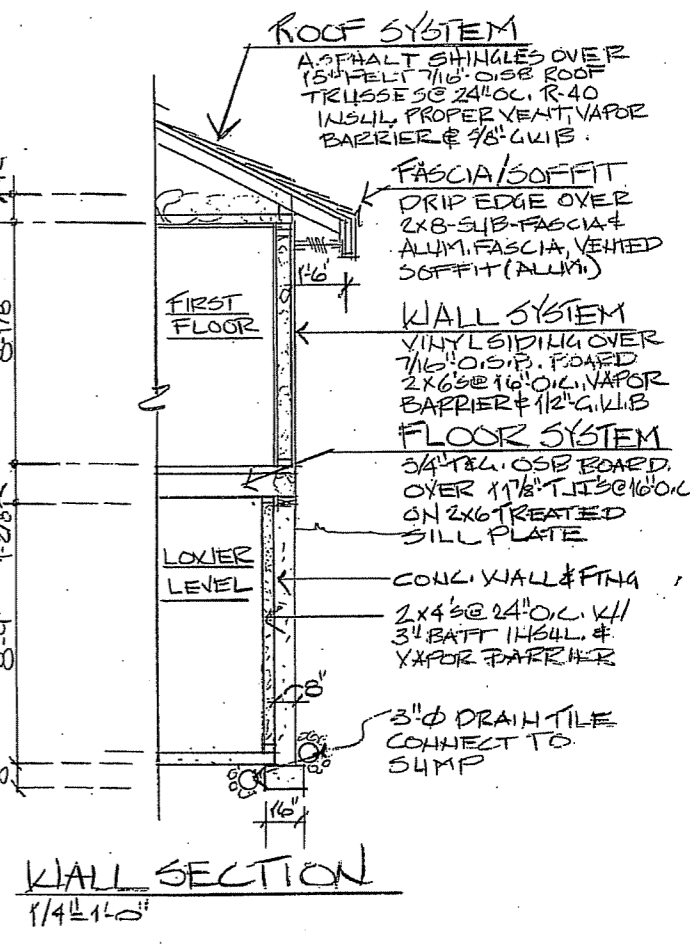 ROOF SYSTEM
ASPHALT SHINGLES OVER
15# FELT 7/16" O.S.B ROOF
TRUSSES @ 24" O.C. R-40
INSUL PROPER VENT, VAPOR
BARRIER & 5/8" G.W.B.
FASCIA/SOFFIT
DRIP EDGE OVER
2x8-SUB-FASCIA &
ALUM. FASCIA, VENTED
SOFFIT (ALUM.)
1'-6"
FIRST
FLOOR
WALL SYSTEM
VINYL SIDING OVER
7/16" O.S.B. BOARD
2x6'S @ 16" O.C., VAPOR
BARRIER & 1/2" G.W.B
FLOOR SYSTEM
3/4" T&G. OSB BOARD.
OVER 11 7/8" TJI'S @ 16" O.C
ON 2x6 TREATED
SILL PLATE
LOWER
LEVEL
CONC. WALL & FTNG
2x4'S @ 24" O.C. W/
3" BATT INSUL. &
VAPOR BARRIER
8"
3" Ø DRAIN TILE
CONNECT TO
SUMP
16"
WALL SECTION
1/4"=1'-0"